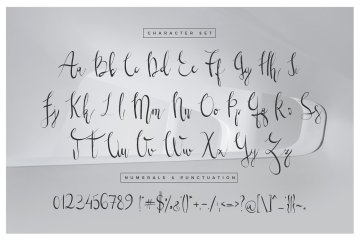 CHARACTER SET
Aa Bb Cc Dd Ee Ff Gg Hh Ii
Jj Kk Ll Mm Nn Oo Pp Qq Rr Ss
Tt Uu Vv Ww Xx Yy Zz
NUMERALS & PUNCTUATION
0123456789